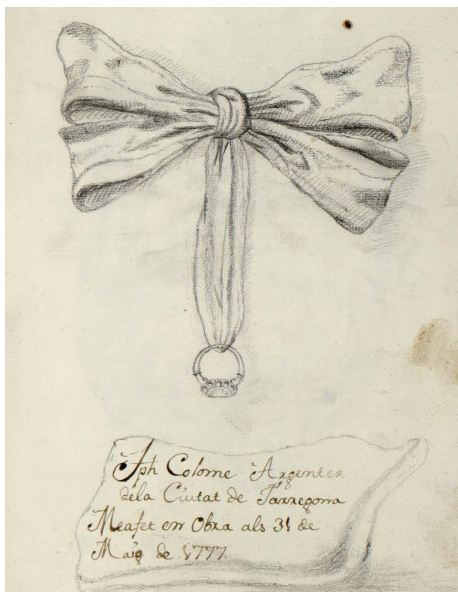 Jph Colome Argenter
dela Ciutat de Tarregona
Meafet en Obra als 31 de
Maig de 1777